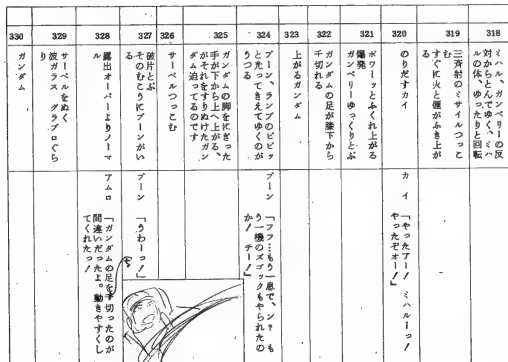 318
ミハル、ガンペリーの反
対からとんでゆく、ミハ
ルの体、ゆったりと回転
319
三斉射のミサイルつっこ
すぐに火と煙がふき上が
る
320
のりだすカイ
カイ
「やったアー! ミハルーっ!
やったぞォー!」
321
ボワーッとふくれ上がる
爆発
ガンペリーゆっくりとぶ
322
ガンダムの足が膝下から
千切れる
323
上がるガンダム
324
ブーン、ランプのピピッ
と光ってきえてゆくのが
うつる
ブーン
「フフ…もう一息で、ン? も
う一機のズゴックもやられたの
か! チー!」
325
ガンダムの脚をにぎった
手が下から上へ上がる、
がそれをすりぬけたガン
ダム迫ってるのです
326
サーベルつっこむ
327
破片とぶ
そのむこうにブーンがい
る
ブーン
「うわーっ!」
328
露出オーバーよりノーマ
ル
アムロ
「ガンダムの足を切ったのが
間違いだったよ。動きやすくし
てくれたっ!
329
サーベルをぬく
波ガラス グラブロぐら
り
330
ガンダム